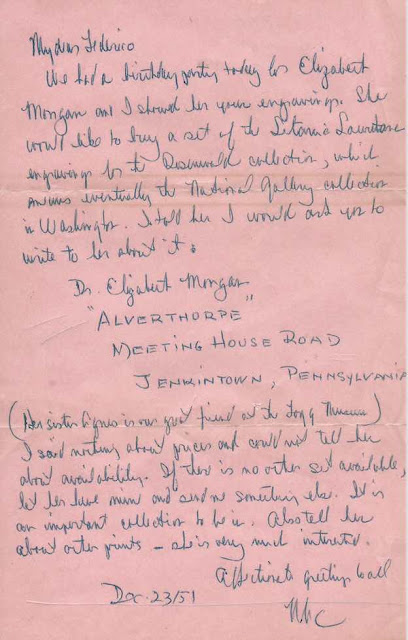 My dear Federico
We had a birthday party today for Elizabeth
Mongan and I showed her your engravings. She
would like to buy a set of the Litania Lauretana
engravings for the Rosenwald collection, which
means eventually the National Gallery collection
in Washington. I told her I would ask you to
write to her about it.
Dr. Elizabeth Mongan
"ALVERTHORPE"
MEETING HOUSE ROAD
JENKINTOWN, PENNSYLVANIA
(Her sister Agnes is our good friend at the Fogg Museum)
I said nothing about prices and could not tell her
about availability. If there is no other set available,
let her have mine and send me something else. It is
an important collection to be in. Also tell her
about other prints – she is very much interested.
Affectionate greetings to all
Dec. 23/51